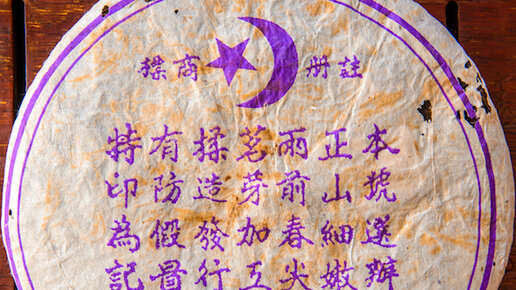 註册商標
本號選辦
正山細嫩
雨前春尖
茗芽加工
揉造發行
有防假冒
特印為記